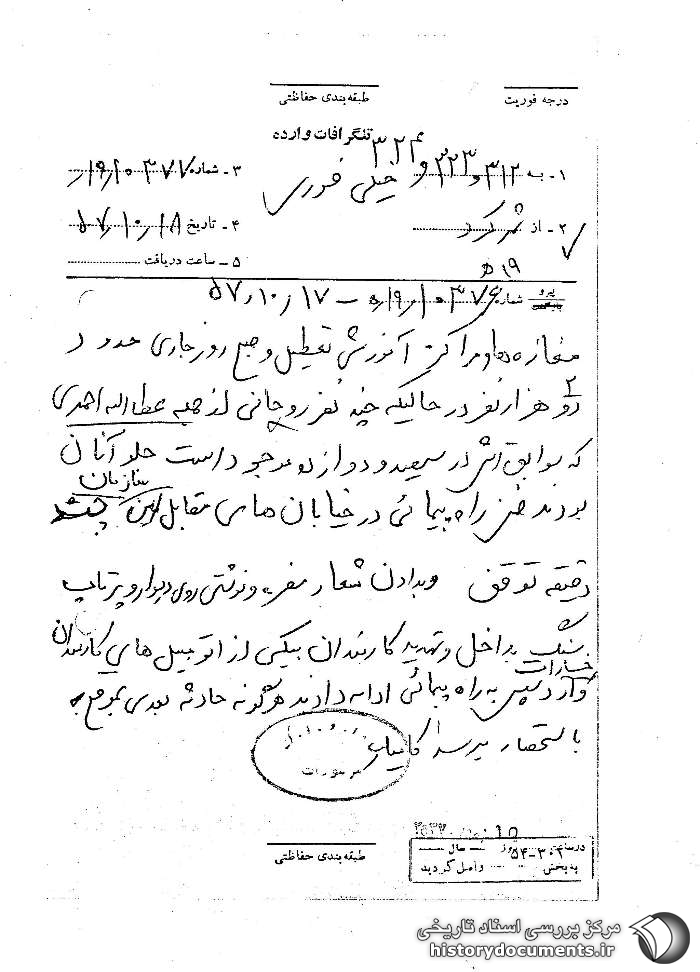 درجه فوریت
طبقه‌بندی حفاظتی
تلگرافات وارده
۱- به ۳۱۲ و ۳۲۳ و ۳۲۴
۳- شماره ۱۰۳۷۷/۹/
خیلی فوری
۲- از شهرکرد
۴- تاریخ ۵۷/۱۰/۱۸
۵- ساعت دریافت
۱۹ ه
پیرو شماره ۱۰۳۷۶/۹ ه - ۵۷/۱۰/۱۷
مغازه ها و مراکز آموزشی تعطیل و صبح روز جاری حدود
۲
دو هزار نفر در حالیکه چند نفر روحانی از جمله عطااله احمدی
که سوابق اش در و دوازده موجود است جلو آنان
بودند ضمن راه پیمائی در خیابان های مقابل این سازمان چند
دقیقه توقف و با دادن شعار مضره و نوشتن روی دیوار و پرتاب
سنگ بداخل و تهدید کارمندان بیکی از اتومبیل های کارمندان
خسارات
وارد سپس به راه پیمائی ادامه دادند هرگونه حادثه بعدی بموقع به
استحضار میرسد کامیاب
مرموزات
درساعت روز سال
۵۴-۳۰۲
به بخش واصل گردید
طبقه‌بندی حفاظتی
مرکز بررسی اسناد تاریخی
historydocuments.ir